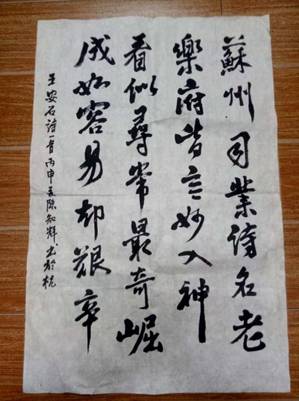 蘇州司業詩名老
樂府皆言妙入神
看似尋常最奇崛
成如容易却艱辛
王安石詩一首丙申夏陈知輝書於杭